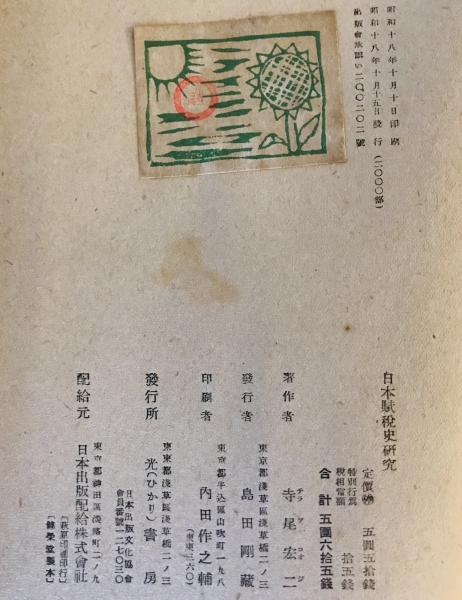 昭和十八年十月十日印刷
昭和十八年十月十五日發行（二〇〇〇部）
出版會承認い二〇〇二〇二號
日本賦稅史硏究
定價 五圓五拾錢
特別行爲稅相當額 拾五錢
合計五圓六拾五錢
著作者 寺尾宏二
テラヲ コオジ
東京都淺草區淺草橋二ノ三
發行者 島田剛藏
東京都牛込區山吹町一九八
印刷者 內田作之輔
（東東三六〇）
東京都淺草區淺草橋二ノ三
發行所 光（ひかり）書房
日本出版文化協會
會員番號一二七〇三〇
東京都神田區淡路町二ノ九
配給元 日本出版配給株式會社
〔萩原印進印行〕
〔錦榮堂製本〕